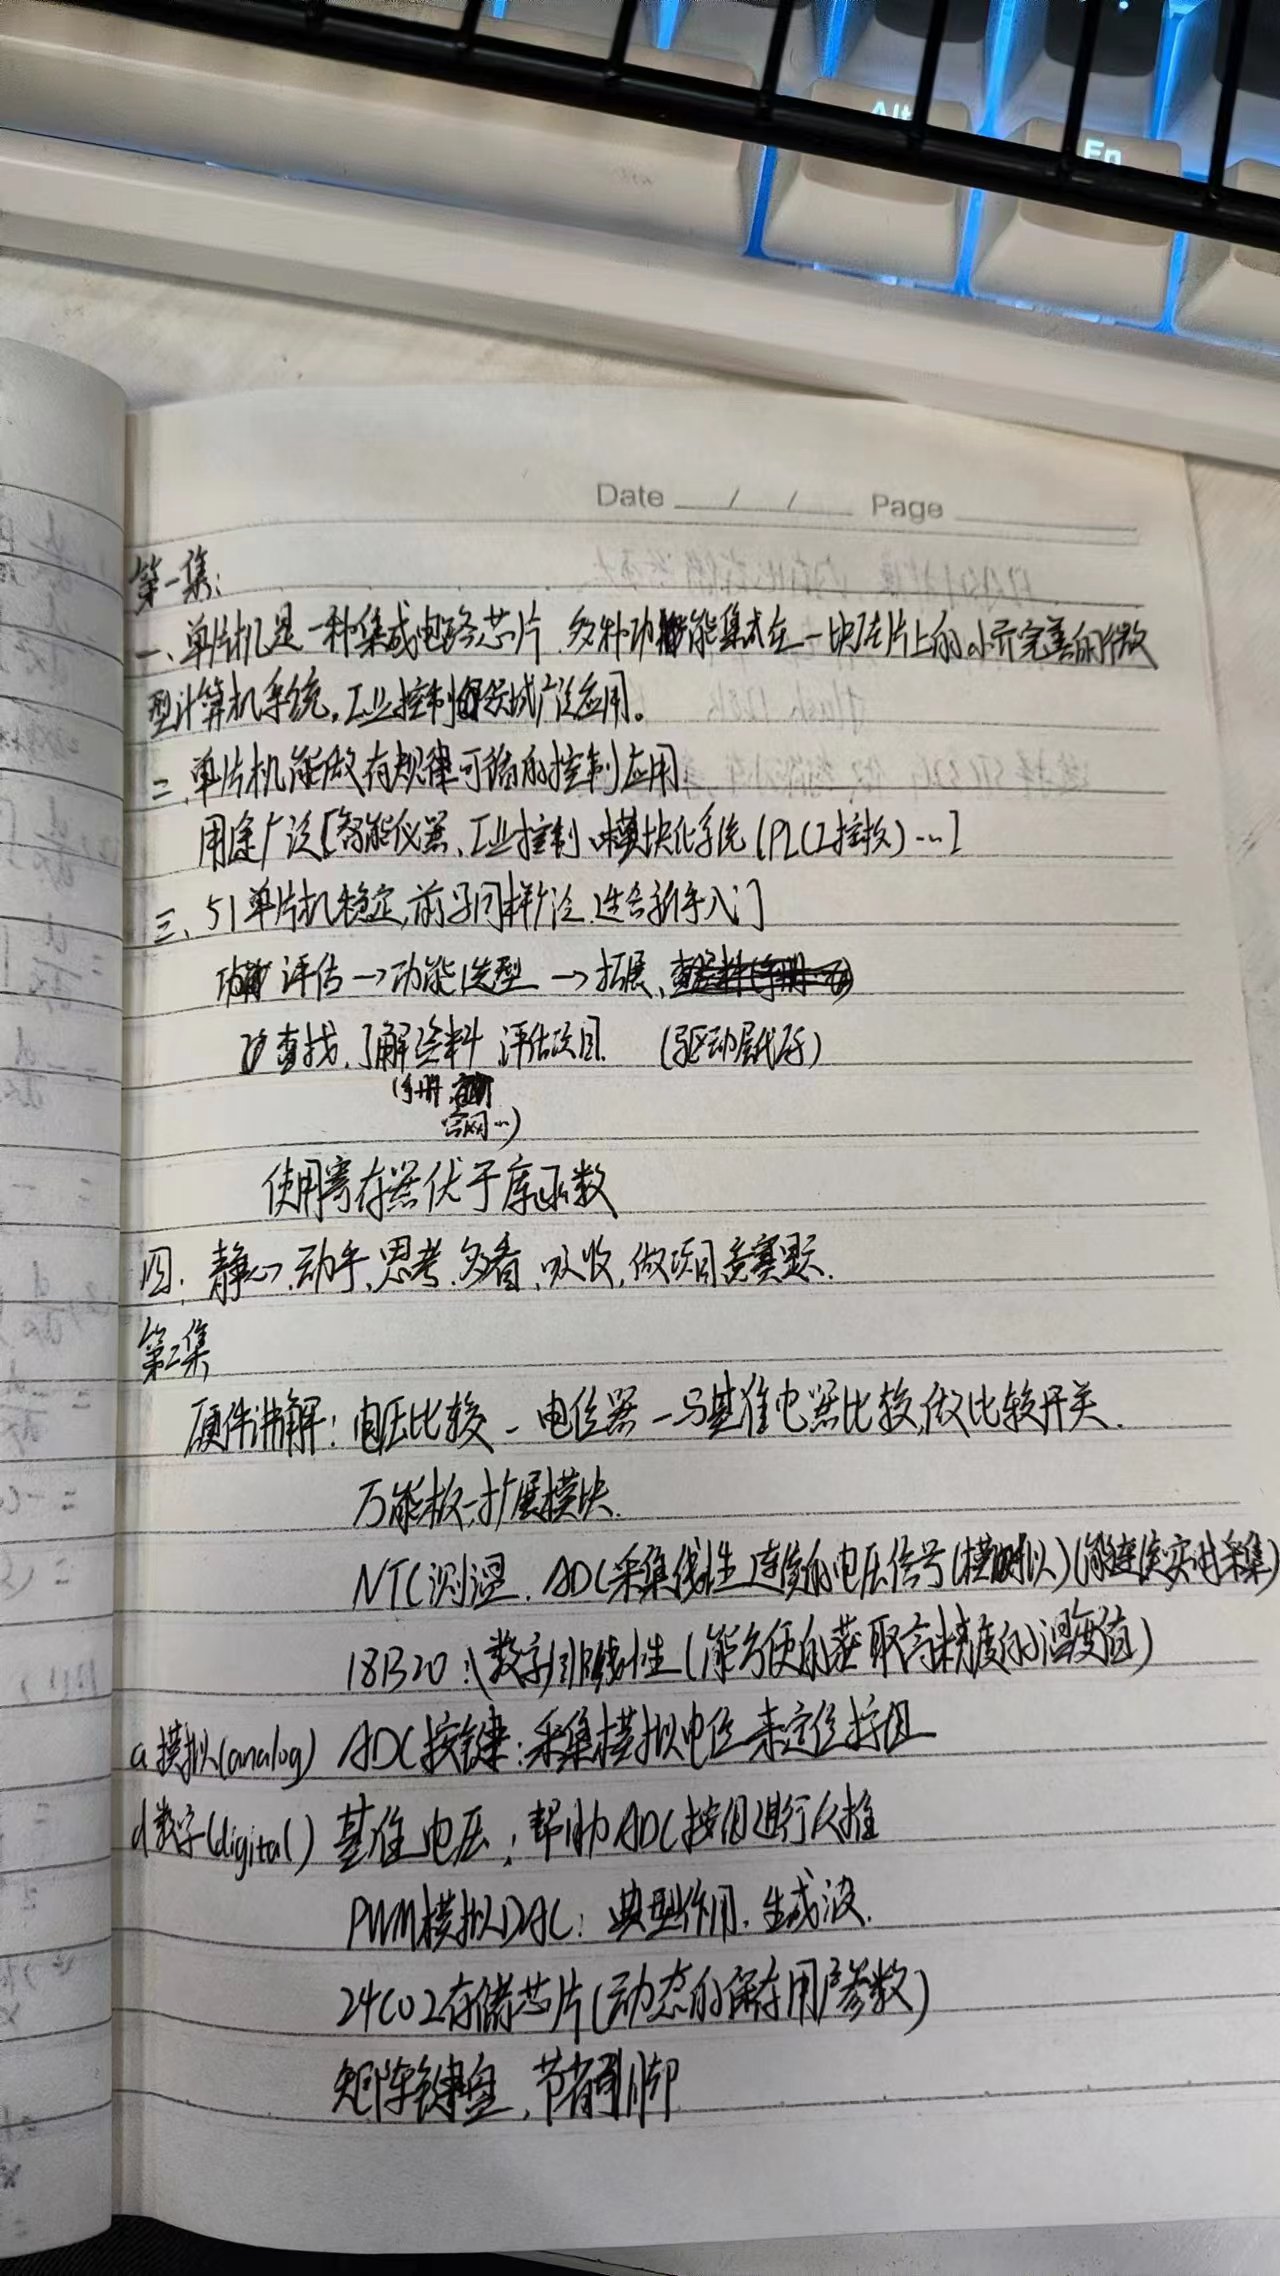 Alt
Fn
Date / / Page
第一集：
一、单片机是一种集成电路芯片，多种功能集成在一块硅片上的小而完善的微
型计算机系统，工业控制领域广泛应用。
二、单片机能做有规律可循的控制应用
用途广泛[智能仪器、工业控制、模块化系统(PLC工控板)…]
三、51单片机稳定，前景同样广泛，适合新手入门
评估→功能选型→拓展、
查找，了解资料 评估项目 (驱动层代码)
(手册
官网…)
使用寄存器优于库函数
四、静心、动手、思考、多看、吸收，做项目竞赛题.
第二集
硬件讲解：电压比较 - 电位器 - 与基准电器比较，做比较开关.
万能板-扩展模块.
NTC测温. ADC采集线性连续的电压信号(模拟)(能连续实时采集)
18B20：(数字)非线性(能方便的获取高精度的温度值)
a模拟(analog) ADC按键：采集模拟电位来定位按钮
d数字(digital) 基准电压；帮助ADC按钮进行反推
PWM模拟DAC：典型作用. 生成波.
24C02存储芯片(动态的保存用户参数)
矩阵键盘，节省引脚